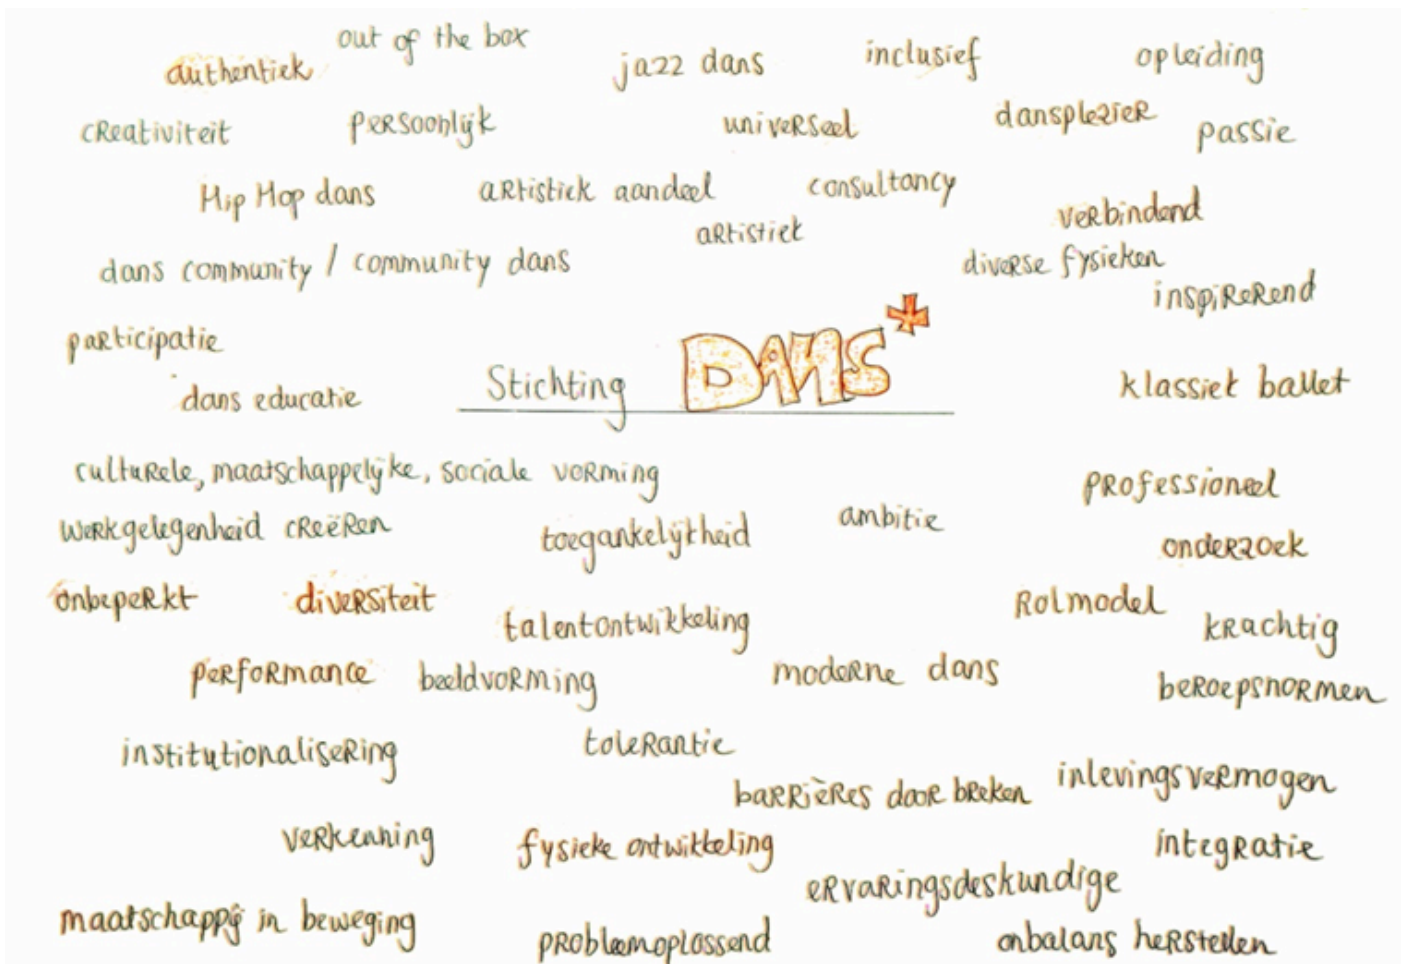 out of the box
authentiek
jazz dans
inclusief
opleiding
creativiteit
persoonlijk
universeel
dansplezier
passie
Hip Hop dans
artistiek aandeel
consultancy
verbindend
artistiek
dans community / community dans
diverse fysieken
inspirerend
participatie
Stichting DANS+
dans educatie
klassiek ballet
culturele, maatschappelijke, sociale vorming
professioneel
werkgelegenheid creëren
toegankelijkheid
ambitie
onderzoek
onbeperkt
diversiteit
talentontwikkeling
Rolmodel
krachtig
performance
beeldvorming
moderne dans
beroepsnormen
institutionalisering
tolerantie
barrières door breken
inlevingsvermogen
verkenning
fysieke ontwikkeling
integratie
ervaringsdeskundige
maatschappij in beweging
probleemoplossend
onbalans herstellen